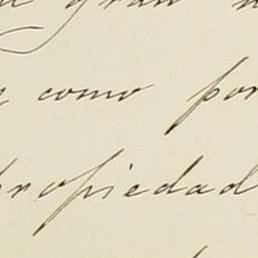 gran
como por
propiedad